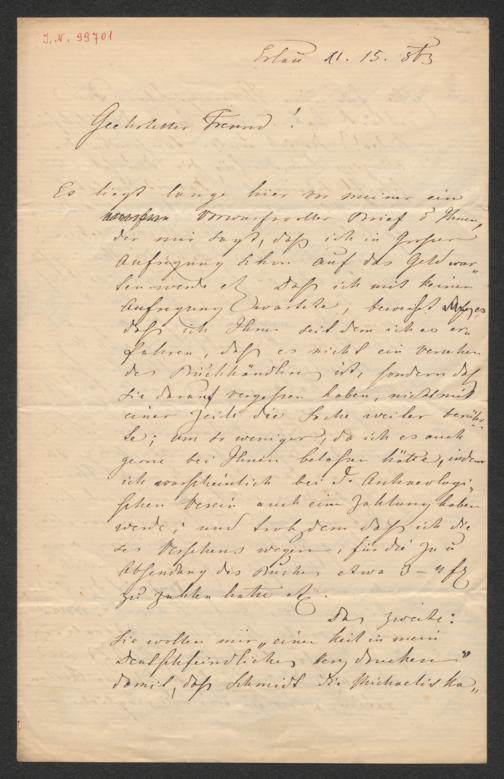 J. N. 99701
Erlau 11. 15. 873
Geehrtester Freund!
Es liegt lange hier vor meiner ein
Vorwurfsvoller Brief v Ihnen,
der mir sagt, daß ich in Großer
Aufregung schon auf das Geld war„
ten werde etc. Daß ich mit keiner
Aufregung wartete, beweist
daß ich Ihnen seit dem ich es er„
fahren, daß es nicht ein Versehen
des Buchhändlers ist, sondern daß
Sie darauf vergessen haben, nicht mit
einer Zeile die Sache weiter berühr„
te; um so weniger, da ich es auch
gerne bei Ihnen belassen hätte, indem
ich warscheinlich bei d. Archaeologi„
schen Verein auch eine Zahlung haben
werde; und trotzdem daß ich die
ses Versehens wegen, für die Zu u
Absendung des Buches etwa 3–4 f
zu zahlen hatte etc.
Das zweite:
Sie wollen mir „einen Keil in mein
Deutschfeindliches Herz drucken"
damit, daß Schmidt die Michaelis Ka„